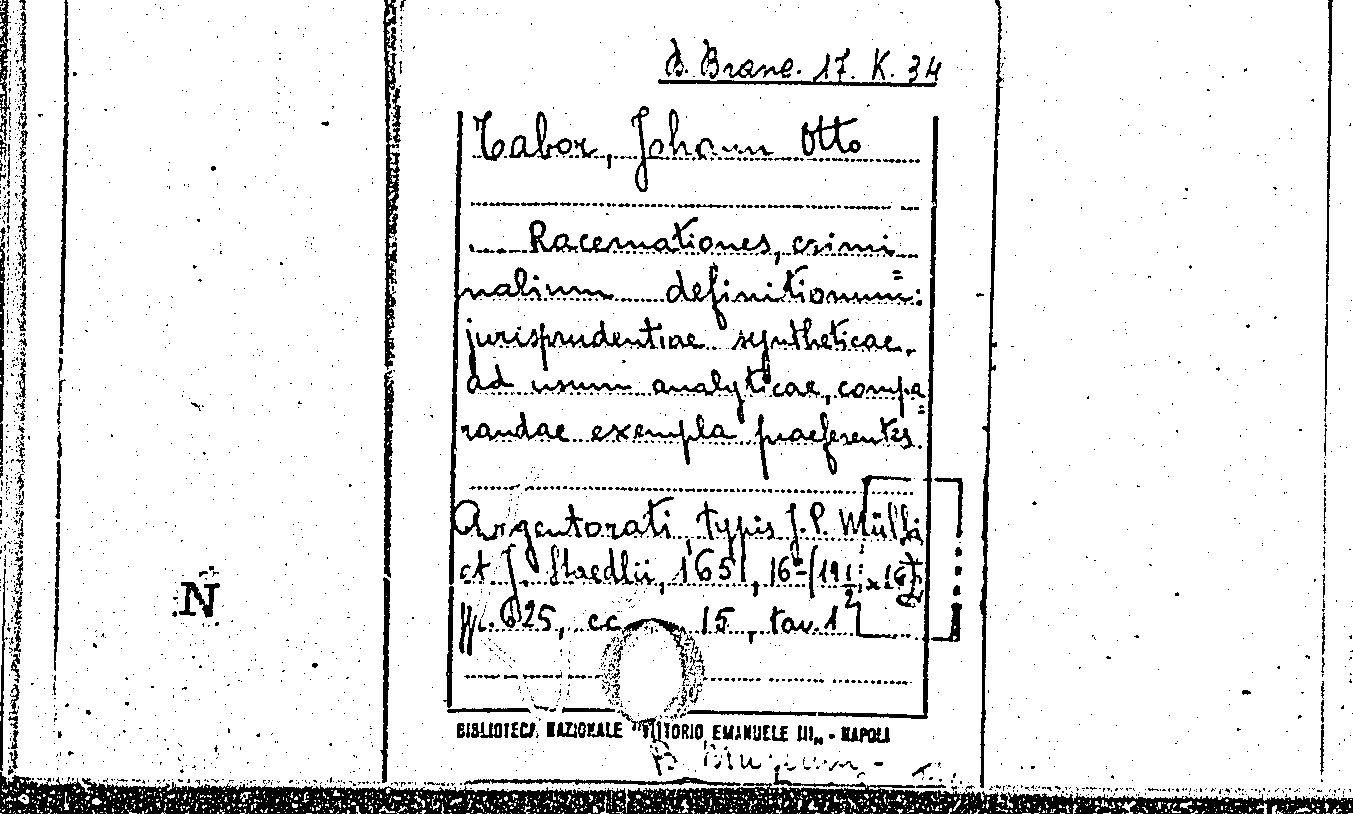 B. Branc. 17. K. 34
Tabor, Johann Otto
Racemationes, crimi
nalium definitionum:
jurisprudentiae syntheticae,
ad usum analyticae, compa
randae exempla praeferentes.
Argentorati, typis J. P. Mülbi
et J. Staedlii, 1651, 16° (19 1/2 x 16
pp. 625, cc 15, tav. 1
N
BIBLIOTECA NAZIONALE "VITTORIO EMANUELE III„ - NAPOLI
B